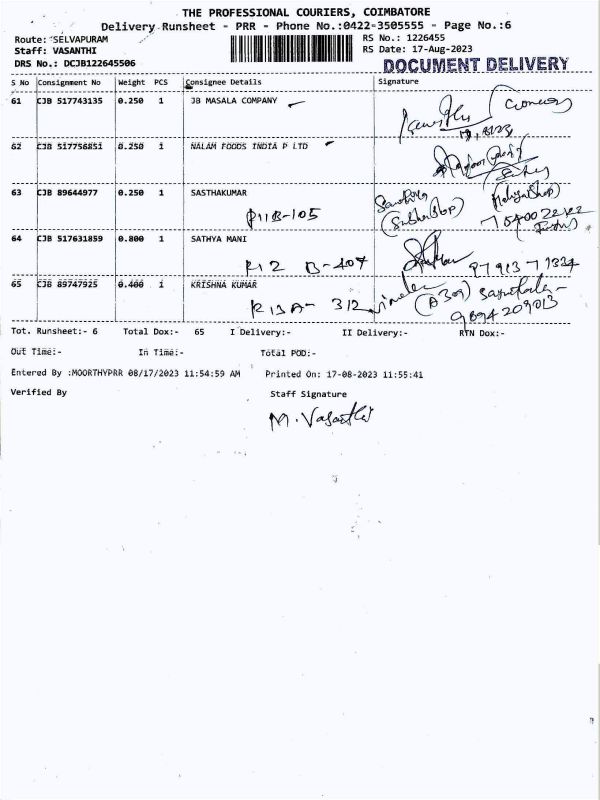 THE PROFESSIONAL COURIERS, COIMBATORE
Delivery Runsheet - PRR - Phone No.:0422-3505555 - Page No.:6
Route: SELVAPURAM
RS No.: 1226455
Staff: VASANTHI
RS Date: 17-Aug-2023
DRS No.: DCJB122645506
DOCUMENT DELIVERY
S No Consignment No Weight PCS Consignee Details Signature
61 CJB 517743135 0.250 1 JB MASALA COMPANY
62 CJB 517756851 0.250 1 NALAM FOODS INDIA P LTD
63 CJB 89644977 0.250 1 SASTHAKUMAR
64 CJB 517631859 0.800 1 SATHYA MANI
R12 B-407
65 CJB 89747925 0.400 1 KRISHNA KUMAR
R13A- 312
(A309)
9894209013
Tot. Runsheet:- 6 Total Dox:- 65 I Delivery:- II Delivery:- RTN Dox:-
Out Time:- In Time:- Total POD:-
Entered By :MOORTHYPRR 08/17/2023 11:54:59 AM Printed On: 17-08-2023 11:55:41
Verified By Staff Signature
M. Vasanthi